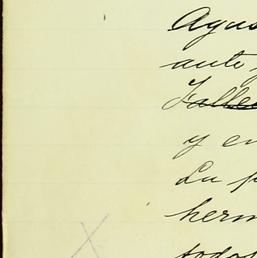 Agus
ante,
Falle
y en
La p
herm
todos